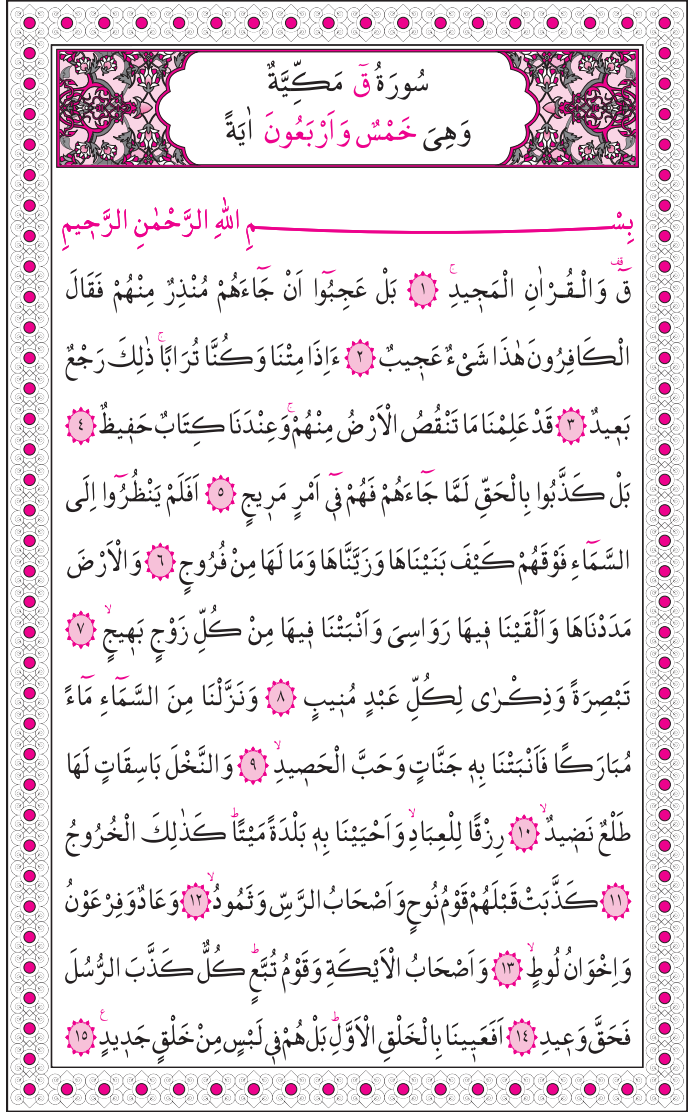 سُورَةُ قٓ مَكِّيَّةٌ
وَهِيَ خَمْسٌ وَاَرْبَعُونَ اٰيَةً
بِسْمِ اللّٰهِ الرَّحْمٰنِ الرَّحٖيمِ
قٓ وَالْقُرْاٰنِ الْمَجٖيدِۚ ﴿١﴾ بَلْ عَجِبُٓوا اَنْ جَٓاءَهُمْ مُنْذِرٌ مِنْهُمْ فَقَالَ
الْكَافِرُونَ هٰذَا شَیْءٌ عَجٖيبٌ ﴿٢﴾ ءَاِذَا مِتْنَا وَكُنَّا تُرَابًاۚ ذٰلِكَ رَجْعٌ
بَعٖيدٌ ﴿٣﴾ قَدْ عَلِمْنَا مَا تَنْقُصُ الْاَرْضُ مِنْهُمْۚ وَعِنْدَنَا كِتَابٌ حَفٖيظٌ ﴿٤﴾
بَلْ كَذَّبُوا بِالْحَقِّ لَمَّا جَٓاءَهُمْ فَهُمْ فٖٓي اَمْرٍ مَرٖيجٍ ﴿٥﴾ اَفَلَمْ يَنْظُرُٓوا اِلَى
السَّمَٓاءِ فَوْقَهُمْ كَيْفَ بَنَيْنَاهَا وَزَيَّنَّاهَا وَمَا لَهَا مِنْ فُرُوجٍ ﴿٦﴾ وَالْاَرْضَ
مَدَدْنَاهَا وَاَلْقَيْنَا فٖيهَا رَوَاسِیَ وَاَنْبَتْنَا فٖيهَا مِنْ كُلِّ زَوْجٍ بَهٖيجٍۙ ﴿٧﴾
تَبْصِرَةً وَذِكْرٰى لِكُلِّ عَبْدٍ مُنٖيبٍ ﴿٨﴾ وَنَزَّلْنَا مِنَ السَّمَٓاءِ مَٓاءً
مُبَارَكًا فَاَنْبَتْنَا بِهٖ جَنَّاتٍ وَحَبَّ الْحَصٖيدِۙ ﴿٩﴾ وَالنَّخْلَ بَاسِقَاتٍ لَهَا
طَلْعٌ نَضٖيدٌۙ ﴿١٠﴾ رِزْقًا لِلْعِبَادِۙ وَاَحْيَيْنَا بِهٖ بَلْدَةً مَيْتًاۜ كَذٰلِكَ الْخُرُوجُ
﴿١١﴾ كَذَّبَتْ قَبْلَهُمْ قَوْمُ نُوحٍ وَاَصْحَابُ الرَّسِّ وَثَمُودُۙ ﴿١٢﴾ وَعَادٌ وَفِرْعَوْنُ
وَاِخْوَانُ لُوطٍۙ ﴿١٣﴾ وَاَصْحَابُ الْاَيْكَةِ وَقَوْمُ تُبَّعٍۜ كُلٌّ كَذَّبَ الرُّسُلَ
فَحَقَّ وَعٖيدِ ﴿١٤﴾ اَفَعَيٖينَا بِالْخَلْقِ الْاَوَّلِۜ بَلْ هُمْ فٖي لَبْسٍ مِنْ خَلْقٍ جَدٖيدٍ ﴿١٥﴾